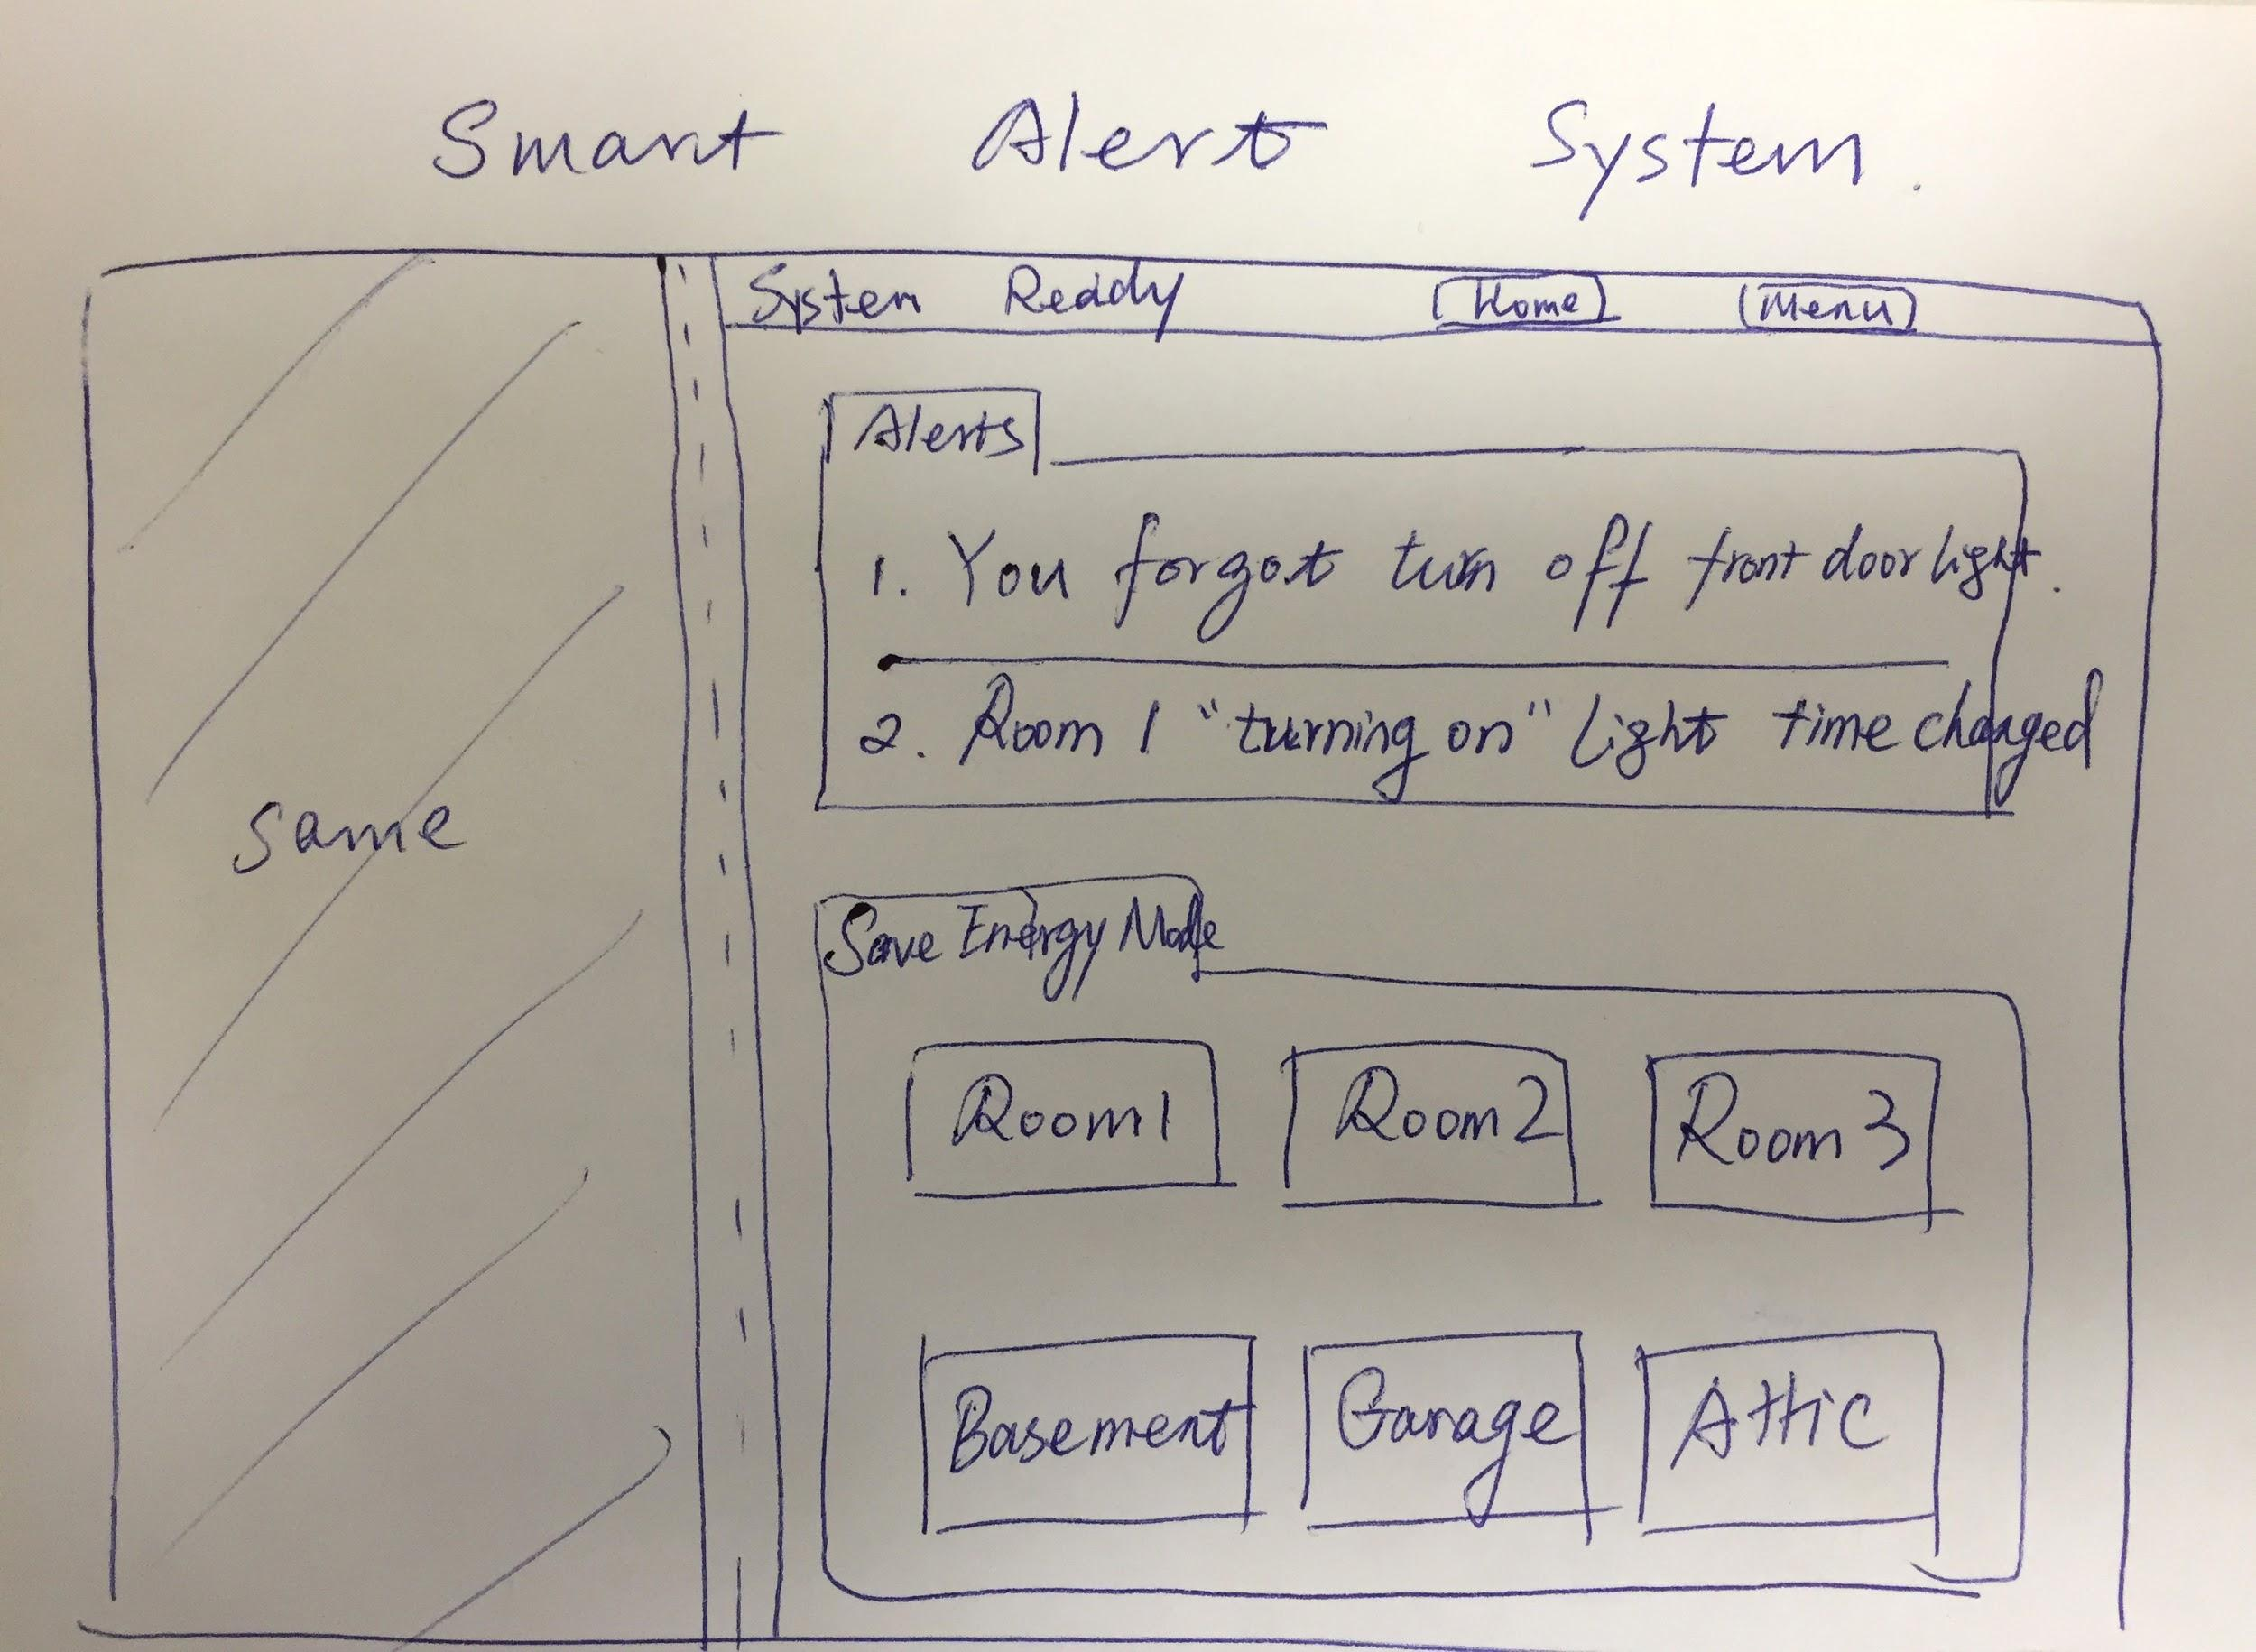 Smart Alert System.
System Ready Home Menu
Alerts
1. You forgot turn off front door light.
2. Room 1 "turning on" light time changed
same
Save Energy Mode
Room 1 Room 2 Room 3
Basement Garage Attic